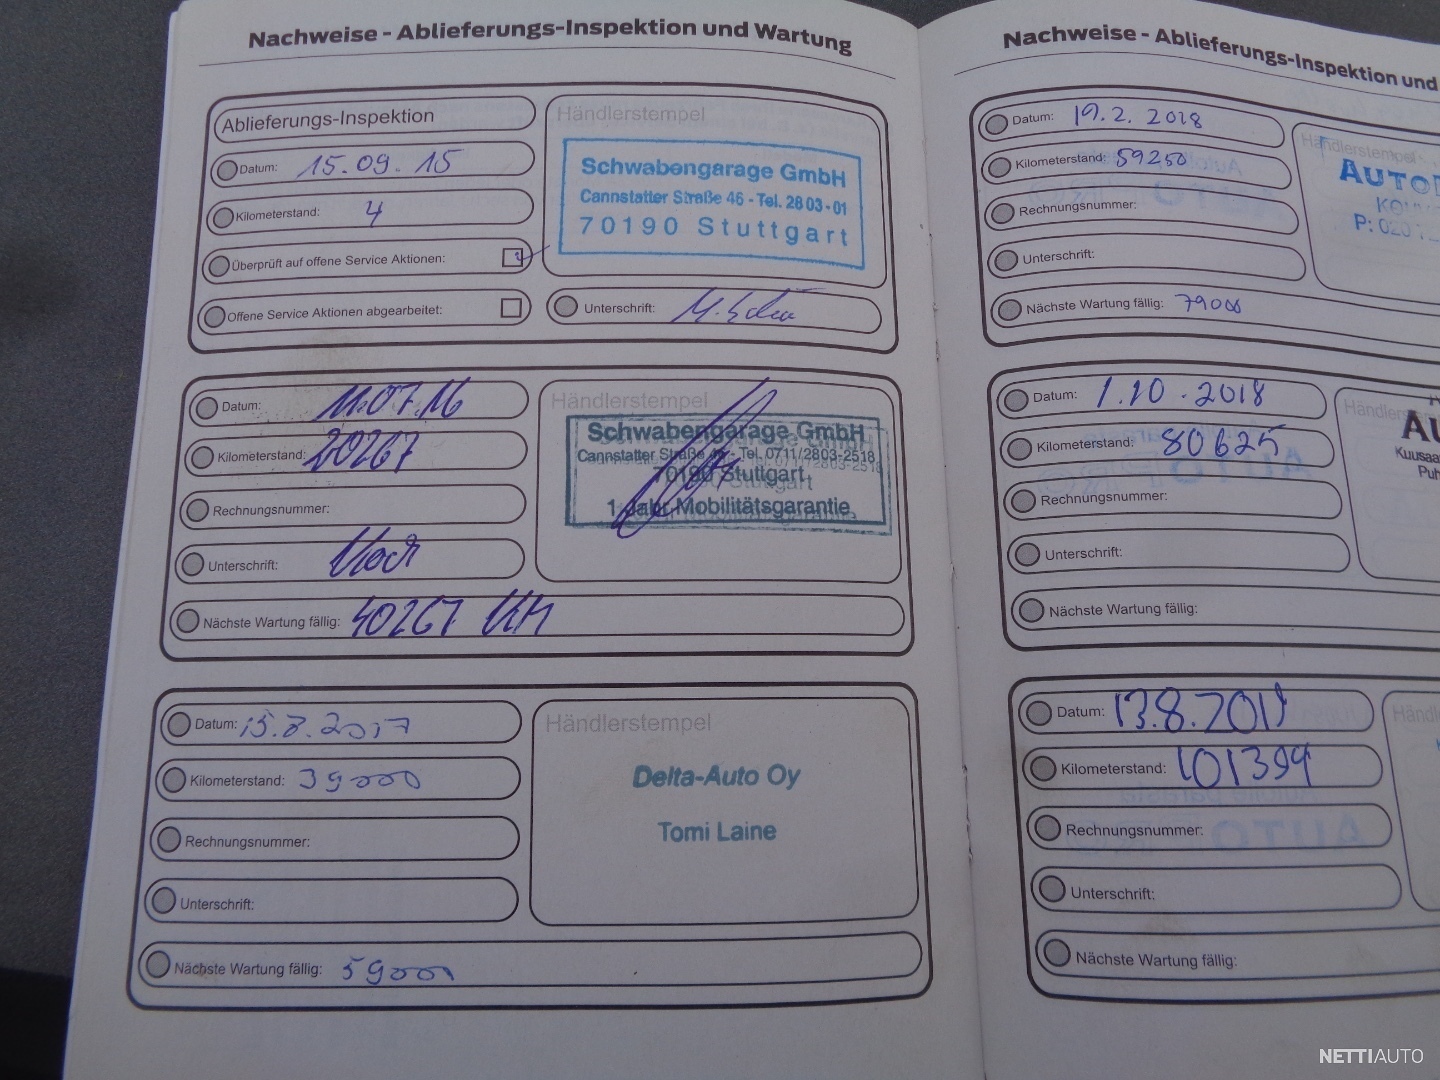 Nachweise - Ablieferungs-Inspektion und Wartung
Ablieferungs-Inspektion
Datum: 15.09.15
Kilometerstand: 4
Überprüft auf offene Service Aktionen:
Offene Service Aktionen abgearbeitet:
Händlerstempel
Schwabengarage GmbH
Cannstatter Straße 46 - Tel. 28 03-01
70190 Stuttgart
Unterschrift:
Datum: 11.07.16
Kilometerstand: 20267
Rechnungsnummer:
Unterschrift:
Nächste Wartung fällig: 40267 KM
Händlerstempel
Schwabengarage GmbH
Cannstatter Straße 46 - Tel. 0711/2803-2518
70190 Stuttgart
1 Jahr Mobilitätsgarantie
Datum: 15.8.2017
Kilometerstand: 39000
Rechnungsnummer:
Unterschrift:
Nächste Wartung fällig: 59000
Händlerstempel
Delta-Auto Oy
Tomi Laine
Nachweise - Ablieferungs-Inspektion und
Datum: 19.2.2018
Kilometerstand: 59250
Rechnungsnummer:
Unterschrift:
Nächste Wartung fällig: 79000
Händlerstempel
P: 020
Datum: 1.10.2018
Kilometerstand: 80625
Rechnungsnummer:
Unterschrift:
Nächste Wartung fällig:
Datum: 13.8.2019
Kilometerstand: 101394
Rechnungsnummer:
Unterschrift:
Nächste Wartung fällig:
NETTIAUTO